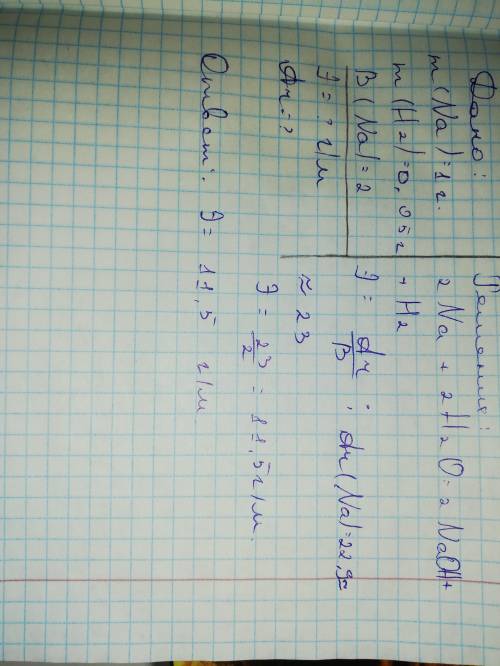 Дано:
m(Na)=1г.
m(H2)=0,05г
B(Na)=2
Э=? г/м
Ar=?
Решения:
2Na + 2H2O=2NaOH+
+H2
Э= Ar/B ; Ar(Na)=22,9=
≈23
Э = 23/2 = 11,5г/м.
Ответ: Э= 11,5 г/м